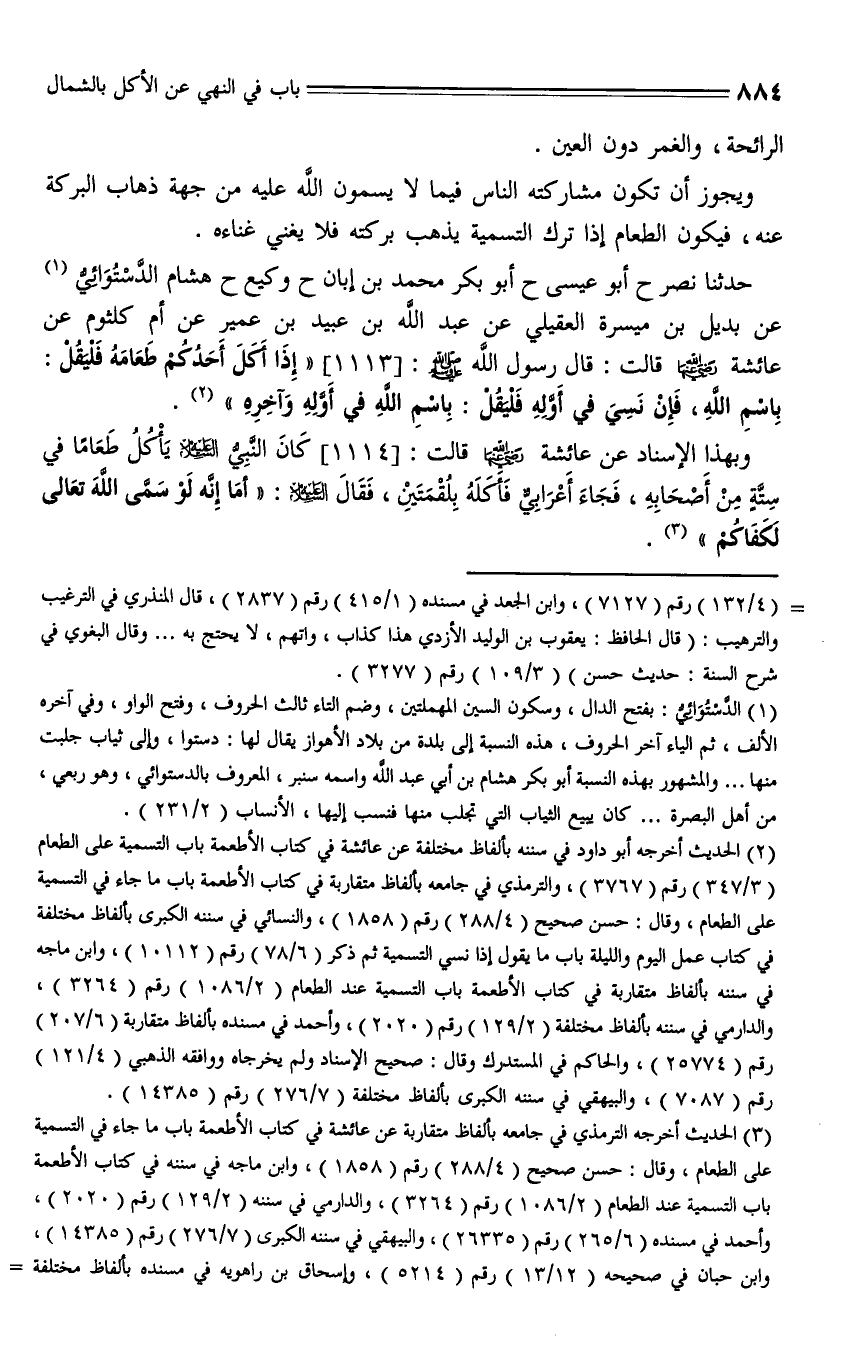 ٨٨٤ باب في النهي عن الأكل بالشمال
الرائحة ، والغمر دون العين .
ويجوز أن تكون مشاركته الناس فيما لا يسمون اللَّه عليه من جهة ذهاب البركة
عنه ، فيكون الطعام إذا ترك التسمية يذهب بركته فلا يغني غناءه .
حدثنا نصر ح أبو عيسى ح أبو بكر محمد بن إبان ح وكيع ح هشام الدَّسْتُوَائِيُّ (١)
عن بديل بن ميسرة العقيلي عن عبد اللَّه بن عبيد بن عمير عن أم كلثوم عن
عائشة رضي الله عنها قالت : قال رسول اللَّه ﷺ : [١١١٣] « إِذَا أَكَلَ أَحَدُكُمْ طَعَامَهُ فَلْيَقُلْ :
بِاسْمِ اللَّهِ ، فَإِنْ نَسِيَ في أَوَّلِهِ فَلْيَقُلْ : بِاسْمِ اللَّهِ في أَوَّلِهِ وَآخِرِهِ » (٢) .
وبهذا الإسناد عن عائشة رضي الله عنها قالت : [١١١٤] كَانَ النَّبِيُّ عليه السلام يَأْكُلُ طَعَامًا في
سِتَّةٍ مِنْ أَصْحَابِهِ ، فَجَاءَ أَعْرَابِيٌّ فَأَكَلَهُ بِلُقْمَتَيْنِ ، فَقَالَ عليه السلام : « أَمَا إِنَّه لَوْ سَمَّى اللَّهَ تعالى
لَكَفَاكُمْ » (٣) .
= ( ١٣٢/٤ ) رقم ( ٧١٢٧ ) ، وابن الجعد في مسنده ( ٤١٥/١ ) رقم ( ٢٨٣٧ ) ، قال المنذري في الترغيب
والترهيب : ( قال الحافظ : يعقوب بن الوليد الأزدي هذا كذاب ، واتهم ، لا يحتج به ... وقال البغوي في
شرح السنة : حديث حسن ) ( ١٠٩/٣ ) رقم ( ٣٢٧٧ ) .
(١) الدَّسْتُوَائِيُّ : بفتح الدال ، وسكون السين المهملتين ، وضم التاء ثالث الحروف ، وفتح الواو ، وفي آخره
الألف ، ثم الياء آخر الحروف ، هذه النسبة إلى بلدة من بلاد الأهواز يقال لها : دستوا ، وإلى ثياب جلبت
منها ... والمشهور بهذه النسبة أبو بكر هشام بن أبي عبد اللَّه واسمه سنبر ، المعروف بالدستوائي ، وهو ربعي ،
من أهل البصرة ... كان يبيع الثياب التي تجلب منها فنسب إليها ، الأنساب ( ٢٣١/٢ ) .
(٢) الحديث أخرجه أبو داود في سننه بألفاظ مختلفة عن عائشة في كتاب الأطعمة باب التسمية على الطعام
( ٣٤٧/٣ ) رقم ( ٣٧٦٧ ) ، والترمذي في جامعه بألفاظ متقاربة في كتاب الأطعمة باب ما جاء في التسمية
على الطعام ، وقال : حسن صحيح ( ٢٨٨/٤ ) رقم ( ١٨٥٨ ) ، والنسائي في سننه الكبرى بألفاظ مختلفة
في كتاب عمل اليوم والليلة باب ما يقول إذا نسي التسمية ثم ذكر ( ٧٨/٦ ) رقم ( ١٠١١٢ ) ، وابن ماجه
في سننه بألفاظ متقاربة في كتاب الأطعمة باب التسمية عند الطعام ( ١٠٨٦/٢ ) رقم ( ٣٢٦٤ ) ،
والدارمي في سننه بألفاظ مختلفة ( ١٢٩/٢ ) رقم ( ٢٠٢٠ ) ، وأحمد في مسنده بألفاظ متقاربة ( ٢٠٧/٦ )
رقم ( ٢٥٧٧٤ ) ، والحاكم في المستدرك وقال : صحيح الإسناد ولم يخرجاه ووافقه الذهبي ( ١٢١/٤ )
رقم ( ٧٠٨٧ ) ، والبيهقي في سننه الكبرى بألفاظ مختلفة ( ٢٧٦/٧ ) رقم ( ١٤٣٨٥ ) .
(٣) الحديث أخرجه الترمذي في جامعه بألفاظ متقاربة عن عائشة في كتاب الأطعمة باب ما جاء في التسمية
على الطعام ، وقال : حسن صحيح ( ٢٨٨/٤ ) رقم ( ١٨٥٨ ) ، وابن ماجه في سننه في كتاب الأطعمة
باب التسمية عند الطعام ( ١٠٨٦/٢ ) رقم ( ٣٢٦٤ ) ، والدارمي في سننه ( ١٢٩/٢ ) رقم ( ٢٠٢٠ ) ،
وأحمد في مسنده ( ٢٦٥/٦ ) رقم ( ٢٦٣٣٥ ) ، والبيهقي في سننه الكبرى ( ٢٧٦/٧ ) رقم ( ١٤٣٨٥ ) ،
وابن حبان في صحيحه ( ١٣/١٢ ) رقم ( ٥٢١٤ ) ، وإسحاق بن راهويه في مسنده بألفاظ مختلفة =